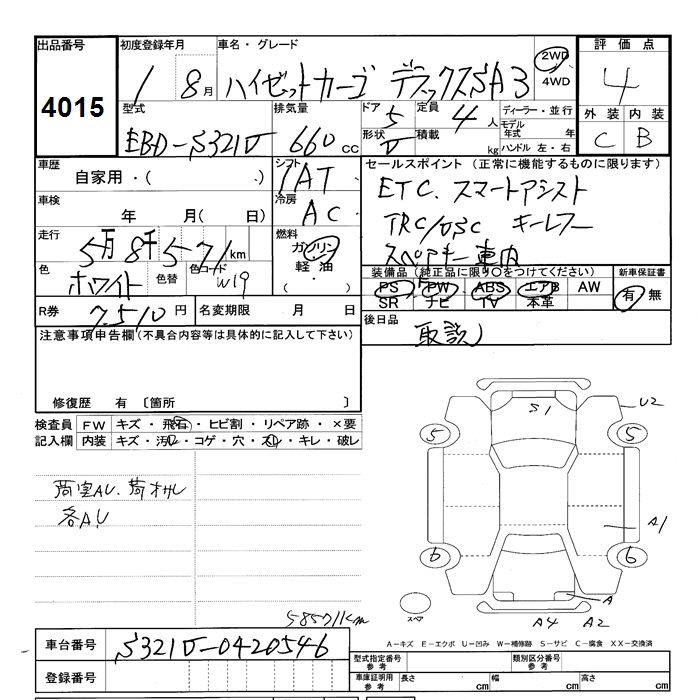 出品番号
4015
初度登録年月
1 8月
車名・グレード
ハイゼットカーゴ デラックスSA3
2WD
4WD
評価点
4
外装 内装
C B
型式
EBD-S321V
排気量
660cc
ドア 5
形状 V
定員 4人
積載 kg
ディーラー・並行
モデル年式 年
ハンドル 左・右
車歴
自家用・( )
シフト
IAT
セールスポイント (正常に機能するものに限ります)
ETC. スマートアシスト
TRC/DSC キーレスー
スペアキー車内
車検
年 月( 日)
冷房
AC
走行
5万8千571km
燃料
ガソリン
軽油
( ・ )
色
ホワイト
色替
色コード
W19
装備品(純正品に限り○をつけてください)
PS PW ABS エアB AW
SR ナビ TV 本革
新車保証書
有 無
R券 7510円
名変期限 月 日
後日品
取説
注意事項申告欄(不具合内容等は具体的に記入して下さい)
修復歴 有 〔箇所 〕
検査員記入欄
FW キズ・飛石・ヒビ割・リペア跡・×要
内装 キズ・汚れ・コゲ・穴・スレ・キレ・破レ
荷室AU.
各AU
S1
U2
5 5
A1
6 6
A
スペア
A4 A2
58571km
A-キズ E-エクボ U-凹み W-補修跡 S-サビ C-腐食 XX-交換済
車台番号 S321V-0420546
登録番号
型式指定番号参考
類別区分番号参考
車庫証明用参考
長さ cm 幅 cm 高さ cm